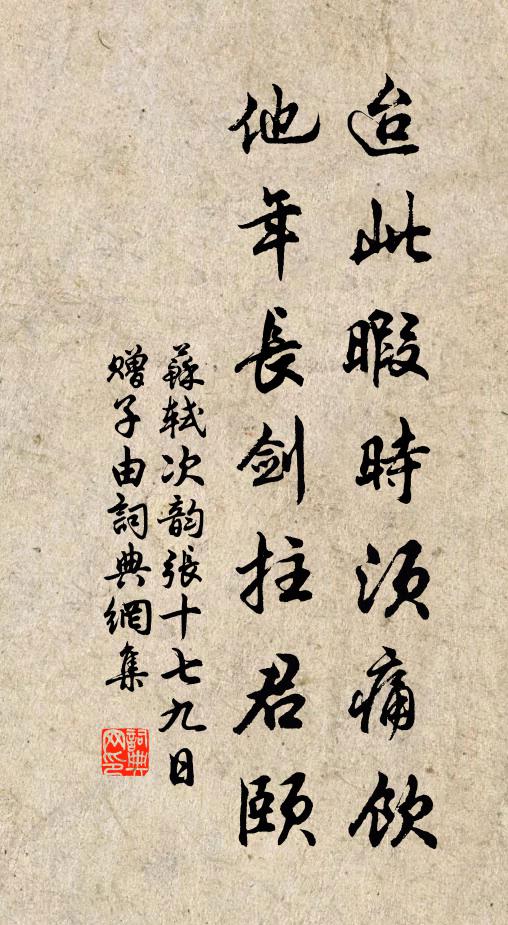 迨此暇時須痛飲
他年長劍拄君頤
蘇軾次韵張十七九日
贈子由詞典網集
詞典网印